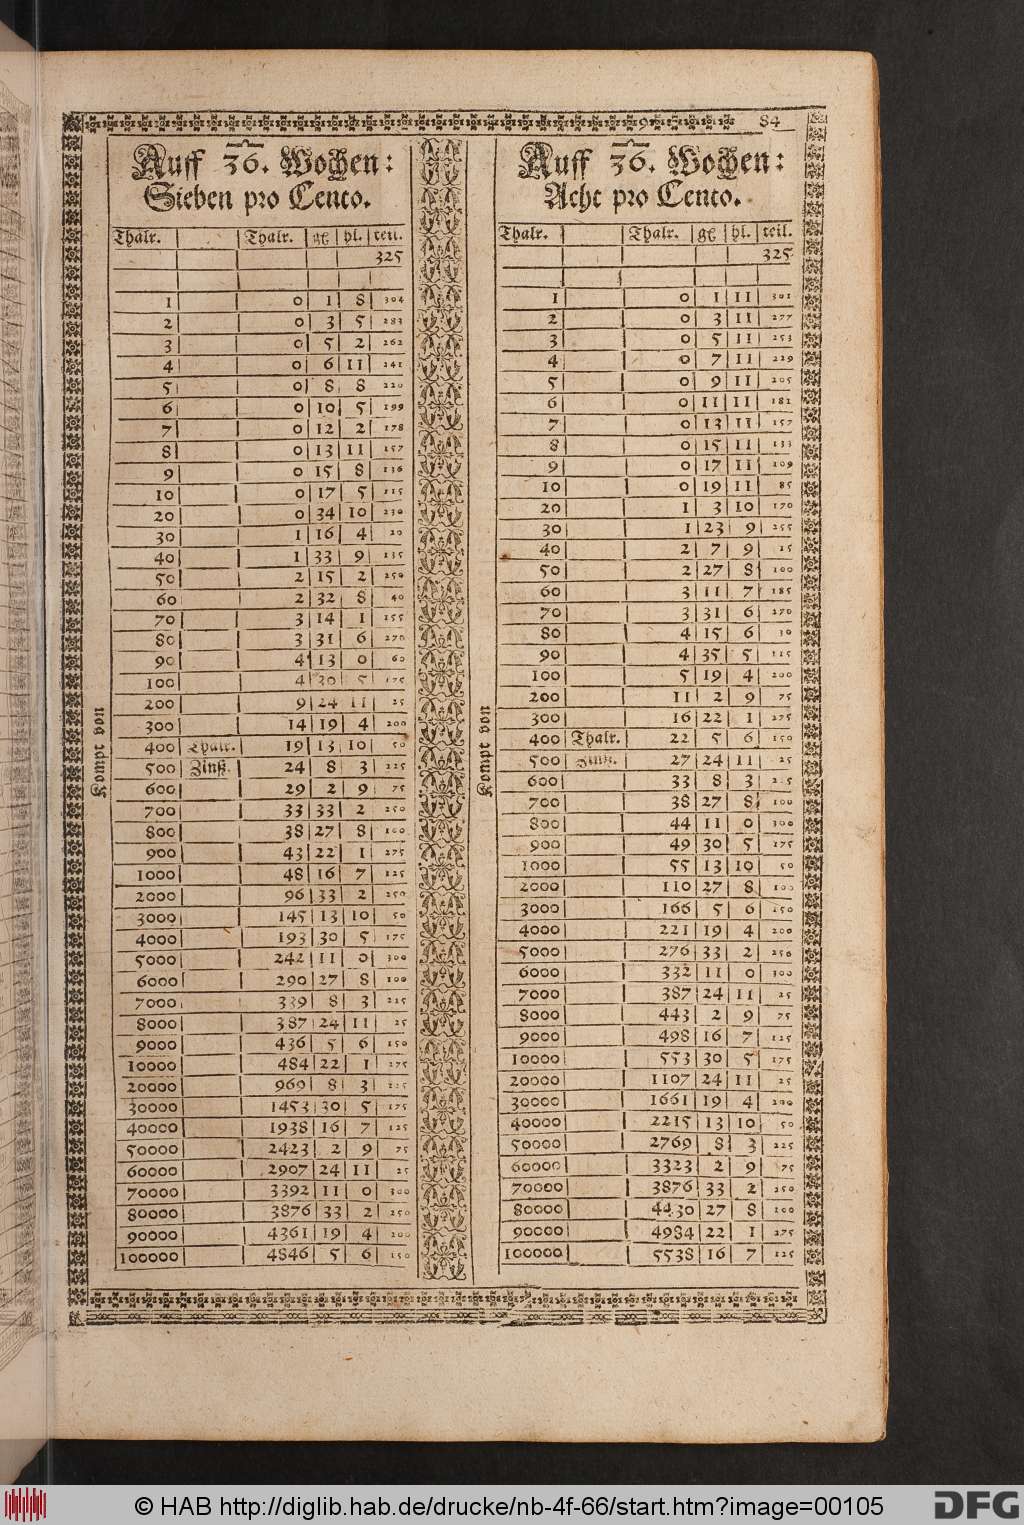 84
Auff 36. Wochen:
Sieben pro Cento.
Thalr. Thalr. gẜ hl. teil.
325
1 0 1 8 304
2 0 3 5 283
3 0 5 2 262
4 0 6 11 241
5 0 8 8 220
6 0 10 5 199
7 0 12 2 178
8 0 13 11 157
9 0 15 8 136
10 0 17 5 115
20 0 34 10 230
30 1 16 4 20
40 1 33 9 135
50 2 15 2 250
60 2 32 8 40
70 3 14 1 155
80 3 31 6 270
90 4 13 0 60
100 4 30 5 175
200 9 24 11 25
300 14 19 4 200
400 Thalr. 19 13 10 50
500 Zinß. 24 8 3 225
600 29 2 9 75
700 33 33 2 250
800 38 27 8 100
900 43 22 1 275
1000 48 16 7 125
2000 96 33 2 250
3000 145 13 10 50
4000 193 30 5 175
5000 242 11 0 300
6000 290 27 8 100
7000 339 8 3 225
8000 387 24 11 25
9000 436 5 6 150
10000 484 22 1 275
20000 969 8 3 225
30000 1453 30 5 175
40000 1938 16 7 125
50000 2423 2 9 75
60000 2907 24 11 25
70000 3392 11 0 300
80000 3876 33 2 250
90000 4361 19 4 200
100000 4846 5 6 150
Kompt von
Auff 36. Wochen:
Acht pro Cento.
Thalr. Thalr. gẜ hl. teil.
325
1 0 1 11 301
2 0 3 11 277
3 0 5 11 253
4 0 7 11 229
5 0 9 11 205
6 0 11 11 181
7 0 13 11 157
8 0 15 11 133
9 0 17 11 109
10 0 19 11 85
20 1 3 10 170
30 1 23 9 255
40 2 7 9 15
50 2 27 8 100
60 3 11 7 185
70 3 31 6 270
80 4 15 6 30
90 4 35 5 115
100 5 19 4 200
200 11 2 9 75
300 16 22 1 275
400 Thalr. 22 5 6 150
500 Zinß. 27 24 11 25
600 33 8 3 225
700 38 27 8 100
800 44 11 0 300
900 49 30 5 175
1000 55 13 10 50
2000 110 27 8 100
3000 166 5 6 150
4000 221 19 4 200
5000 276 33 2 250
6000 332 11 0 300
7000 387 24 11 25
8000 443 2 9 75
9000 498 16 7 125
10000 553 30 5 175
20000 1107 24 11 25
30000 1661 19 4 200
40000 2215 13 10 50
50000 2769 8 3 225
60000 3323 2 9 75
70000 3876 33 2 250
80000 4430 27 8 100
90000 4984 22 1 275
100000 5538 16 7 125
Kompt von
© HAB http://diglib.hab.de/drucke/nb-4f-66/start.htm?image=00105
DFG